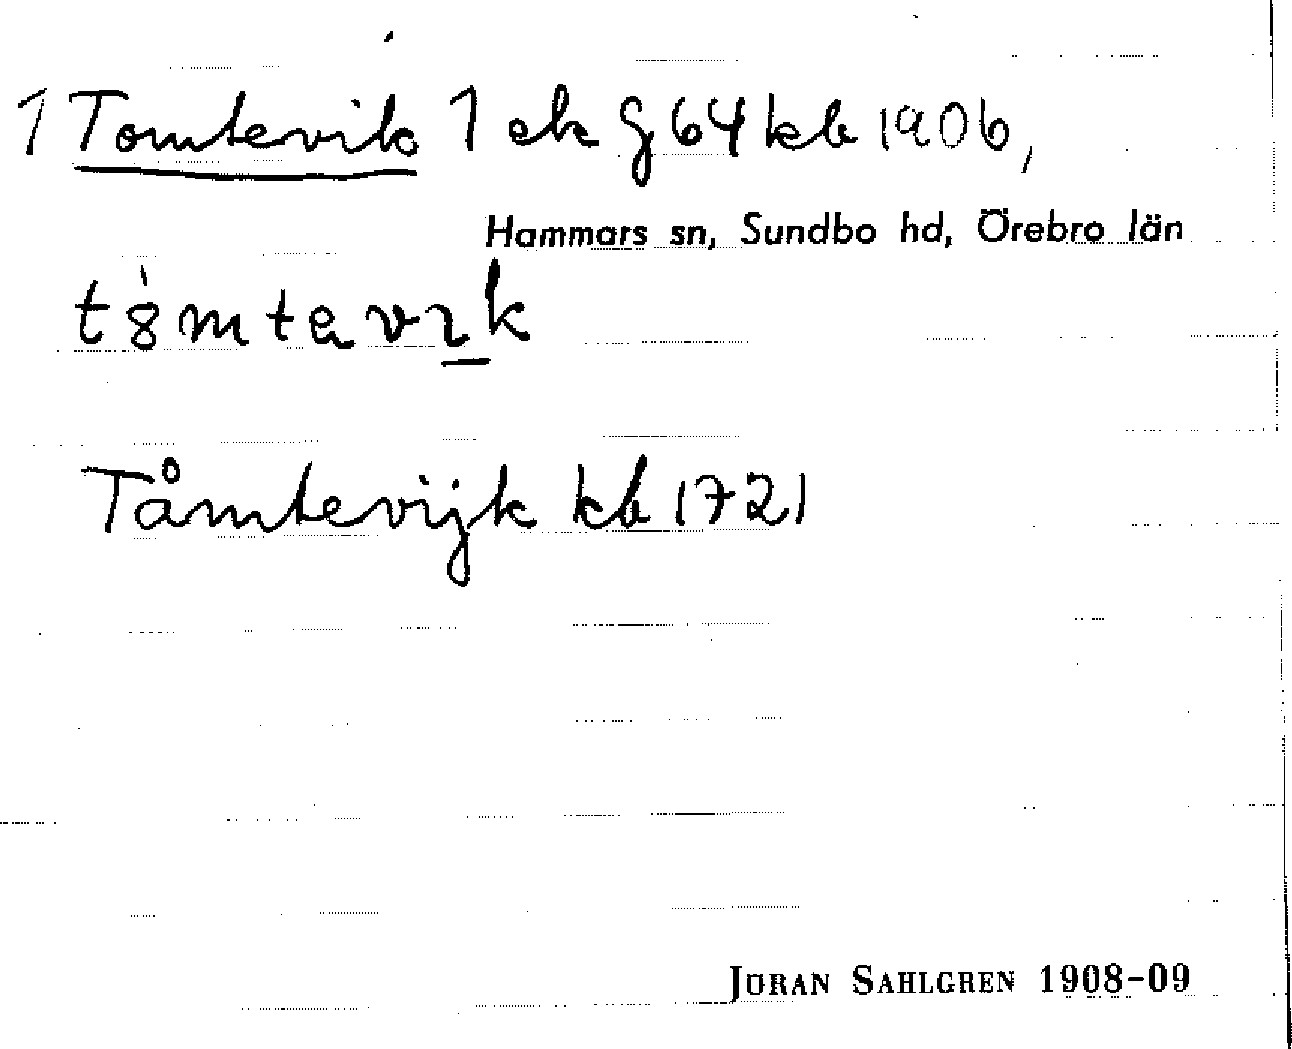 1 Tomtevik 1 ek g 64 kb 1906,
Hammars sn, Sundbo hd, Örebro län
Tåmtevijk kb 1721
JÖRAN SAHLGREN 1908-09